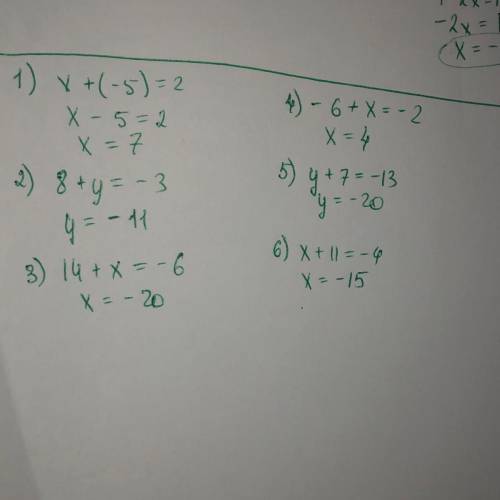 -2x =
x = -
1) x + (-5) = 2
x - 5 = 2
x = 7
2) 8 + y = -3
y = -11
3) 14 + x = -6
x = -20
4) -6 + x = -2
x = 4
5) y + 7 = -13
y = -20
6) x + 11 = -4
x = -15